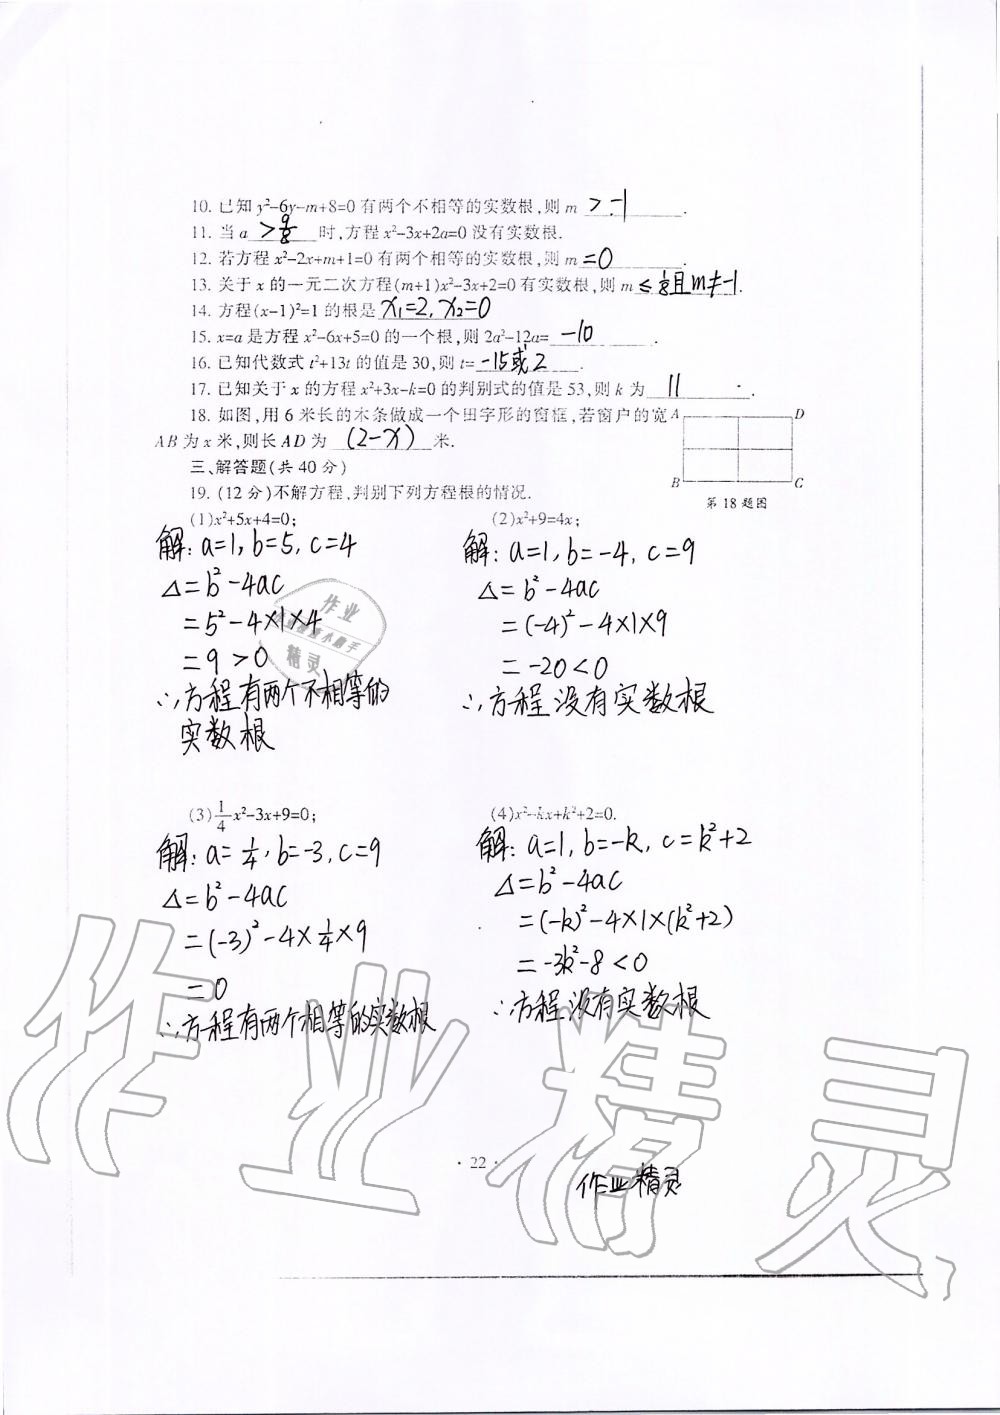 10. 已知 y²-6y-m+8=0 有两个不相等的实数根,则 m >-1 .
11. 当 a >9/8 时,方程 x²-3x+2a=0 没有实数根.
12. 若方程 x²-2x+m+1=0 有两个相等的实数根,则 m =0 .
13. 关于 x 的一元二次方程(m+1)x²-3x+2=0 有实数根,则 m ≤1/8且m≠-1.
14. 方程(x-1)²=1 的根是 x₁=2, x₂=0
15. x=a 是方程 x²-6x+5=0 的一个根,则 2a²-12a= -10 .
16. 已知代数式 t²+13t 的值是 30,则 t= -15或2 .
17. 已知关于 x 的方程 x²+3x-k=0 的判别式的值是 53,则 k 为 11 .
18. 如图,用 6 米长的木条做成一个田字形的窗框,若窗户的宽
AB 为 x 米,则长 AD 为 (2-x) 米.
A D
B C
第 18 题图
三、解答题(共 40 分)
19. (12 分)不解方程,判别下列方程根的情况.
(1)x²+5x+4=0;
解: a=1, b=5, c=4
Δ=b²-4ac
=5²-4×1×4
=9>0
∴方程有两个不相等的
实数根
(2)x²+9=4x;
解: a=1, b=-4, c=9
Δ=b²-4ac
=(-4)²-4×1×9
=-20<0
∴方程没有实数根
(3)1/4x²-3x+9=0;
解: a=1/4, b=-3, c=9
Δ=b²-4ac
=(-3)²-4×1/4×9
=0
∴方程有两个相等的实数根
(4)x²-kx+k²+2=0.
解: a=1, b=-k, c=k²+2
Δ=b²-4ac
=(-k)²-4×1×(k²+2)
=-3k²-8<0
∴方程没有实数根
作业
精灵
作业精灵
· 22 ·
作业精灵